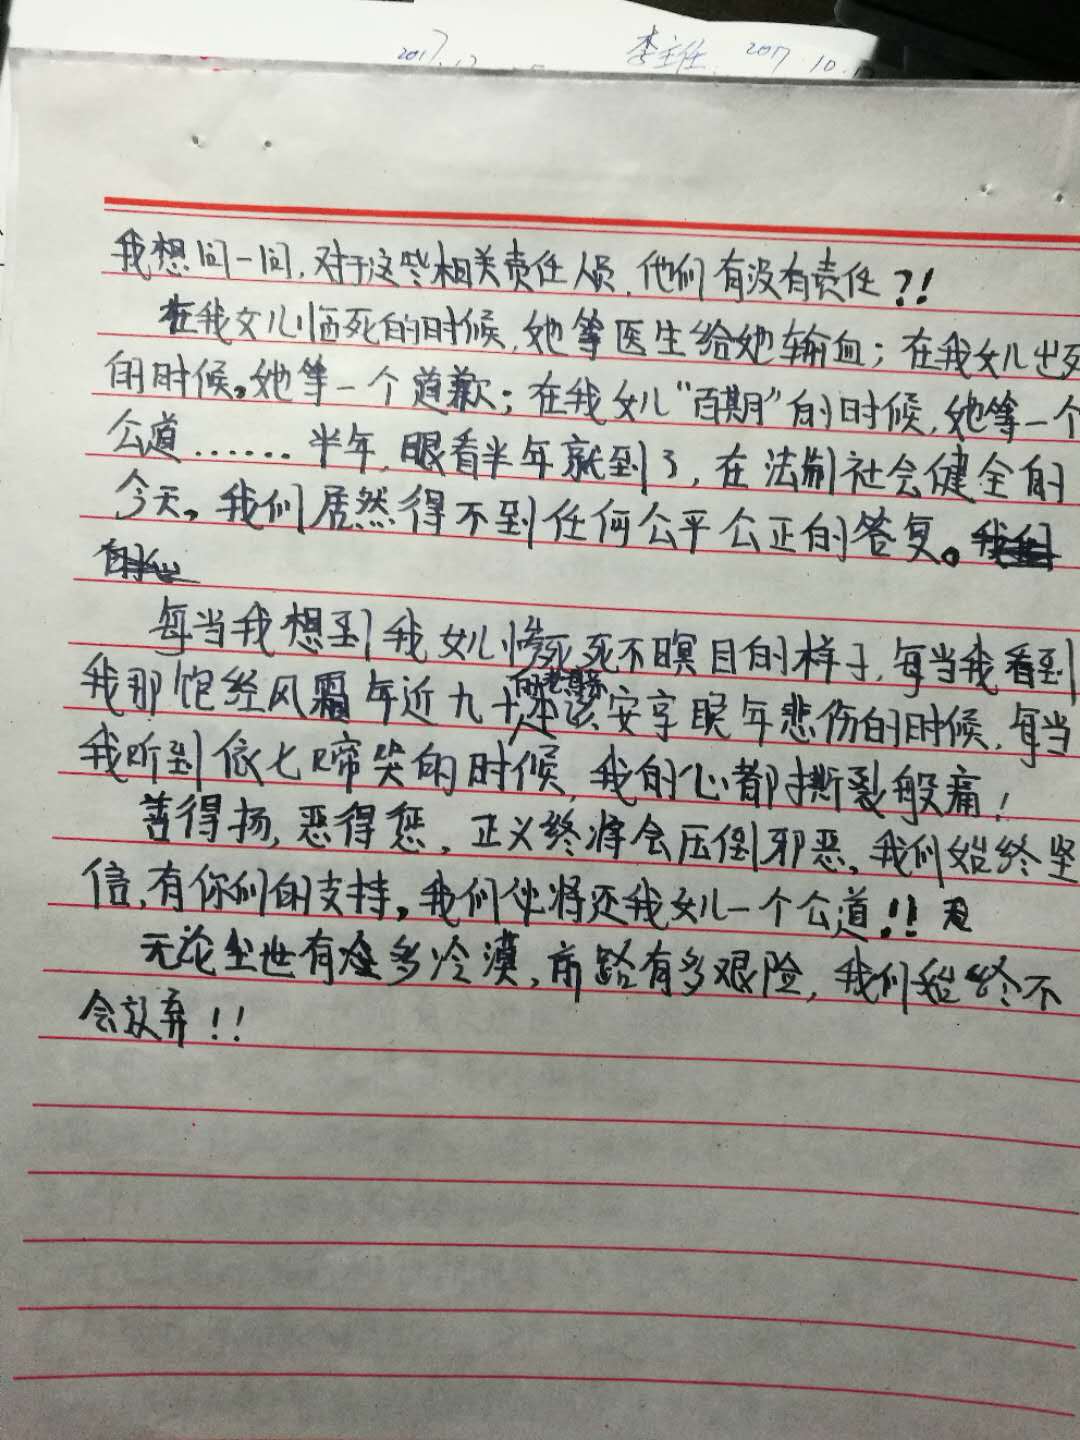 2017.12
李主任 2017.10.
我想问一问,对于这些相关责任人员,他们有没有责任?!
在我女儿临死的时候,她等医生给她输血;在我女儿出死
的时候,她等一个道歉;在我女儿“百期”的时候,她等一个
公道……半年,眼看半年就到了,在法制社会健全的
今天,我们居然得不到任何公平公正的答复。
每当我想到我女儿惨死死不瞑目的样子,每当我看到
我那饱经风霜年近九十的老母亲本该安享晚年悲伤的时候,每当
我听到依七啼哭的时候,我的心都撕裂般痛!
善得扬,恶得惩,正义终将会压倒邪恶,我们始终坚
信,有你们的支持,我们必将还我女儿一个公道!!
无论尘世有多冷漠,前路有多艰险,我们始终不
会放弃!!